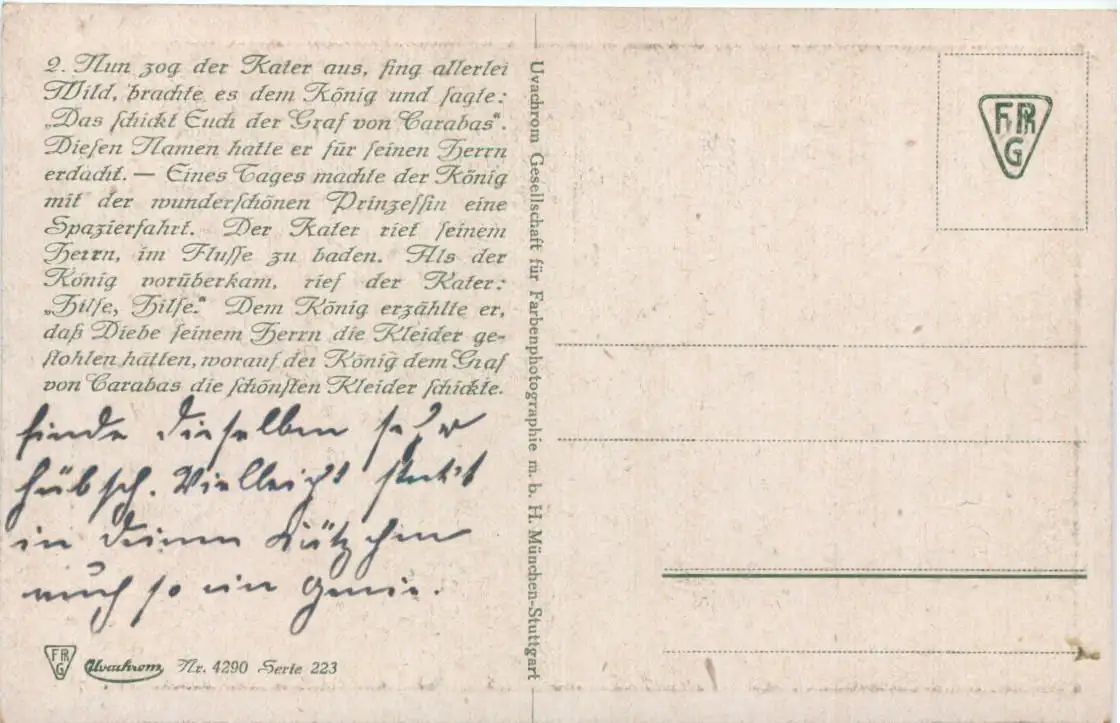 2. Nun zog der Kater aus, fing allerlei
Wild, brachte es dem König und sagte:
„Das schickt Euch der Graf von Carabas“.
Diesen Namen hatte er für seinen Herrn
erdacht. — Eines Tages machte der König
mit der wunderschönen Prinzessin eine
Spazierfahrt. Der Kater riet seinem
Herrn, im Flusse zu baden. Als der
König vorüberkam, rief der Kater:
„Hilfe, Hilfe.“ Dem König erzählte er,
daß Diebe seinem Herrn die Kleider ge-
stohlen hätten, worauf der König dem Graf
von Carabas die schönsten Kleider schickte.
finde dieselben sehr
hübsch. Vielleicht steckt
in deinem Kätzchen
auch so ein Genie.
FRPG Uvachrom Nr. 4290 Serie 223
Uvachrom Gesellschaft für Farbenphotographie m. b. H. München-Stuttgart